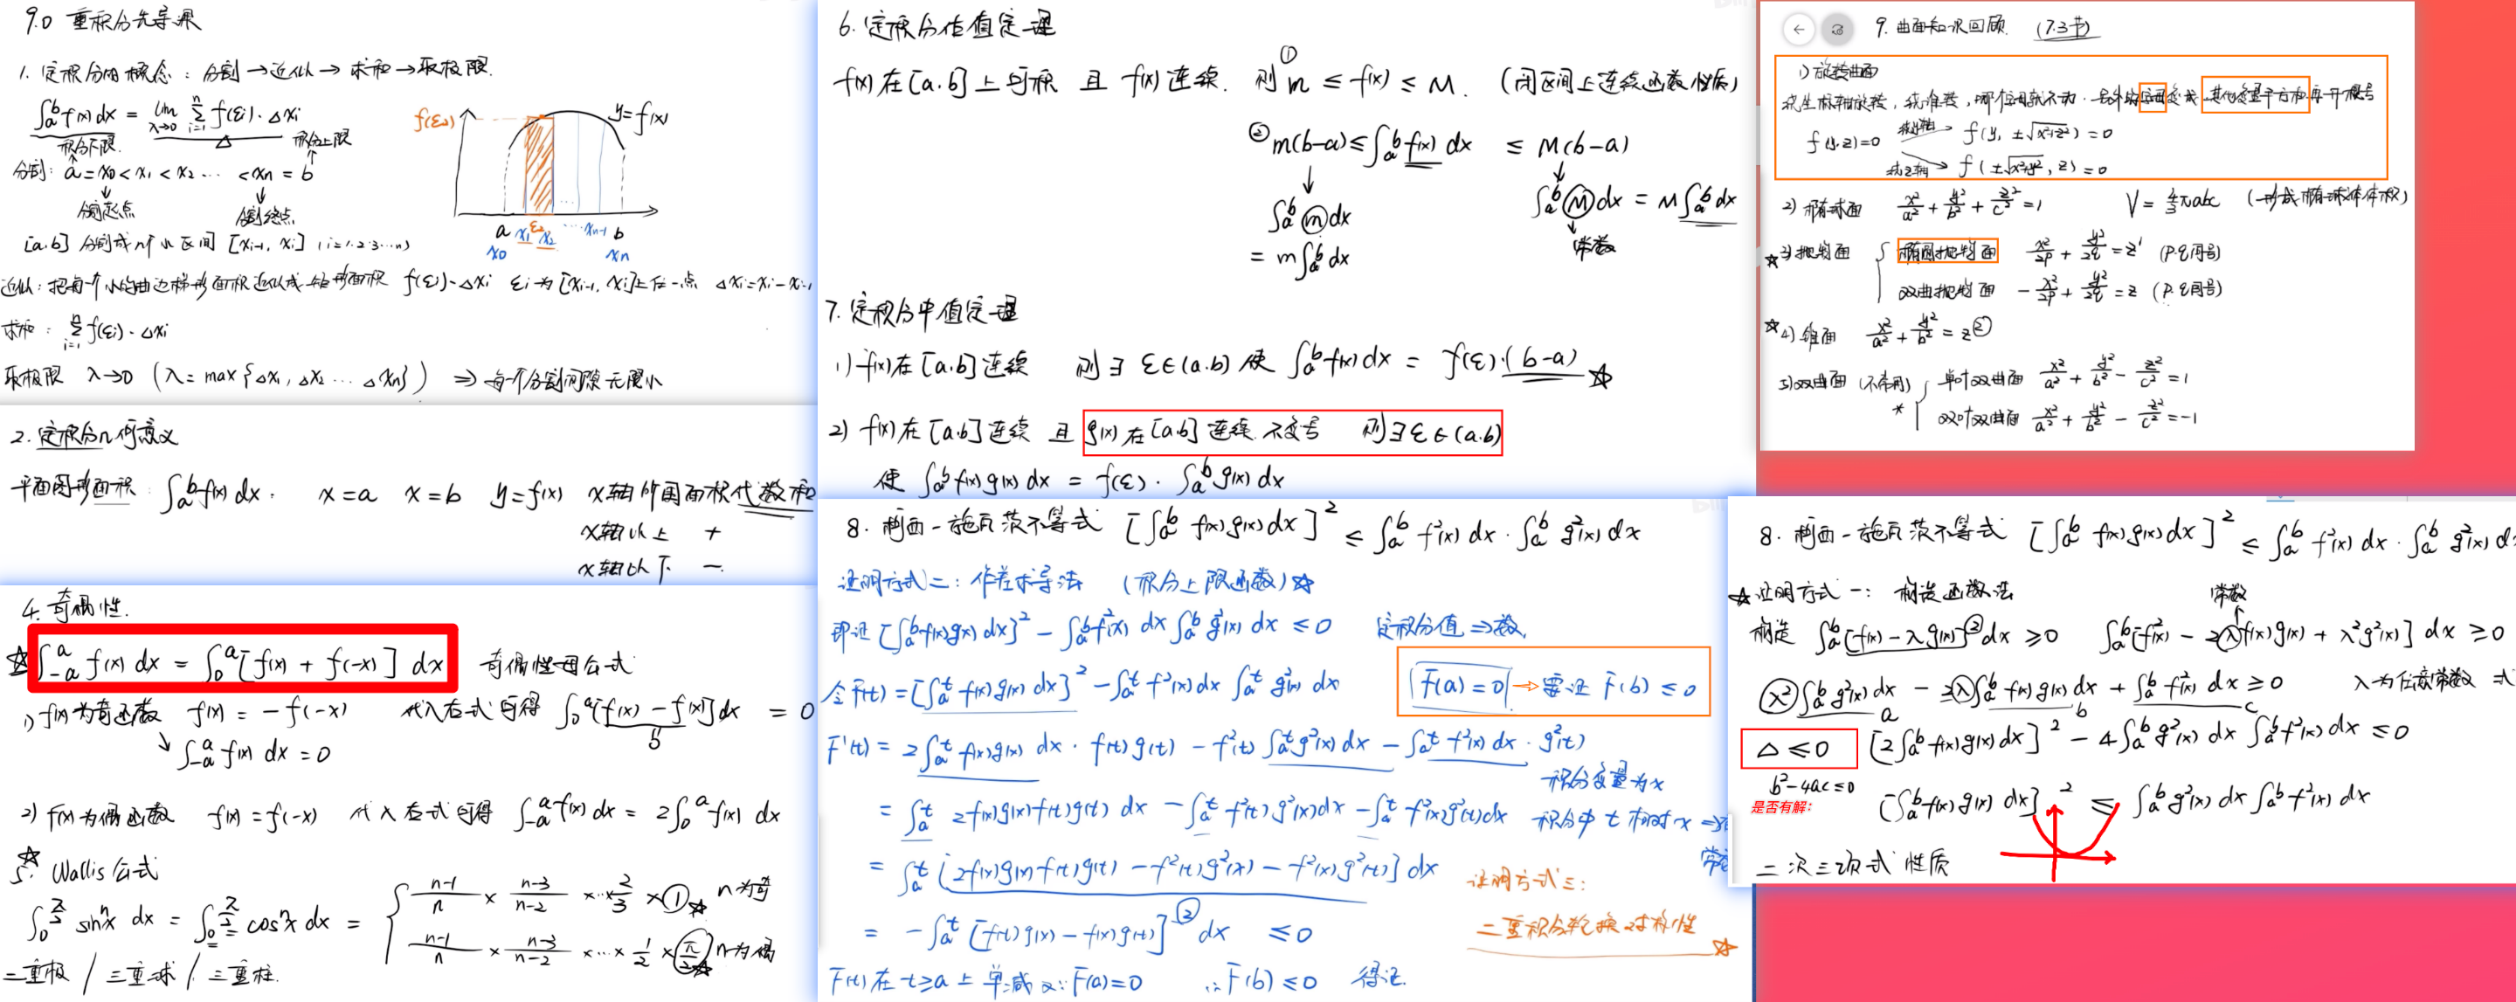 9.0 重积分先导课
1. 定积分的概念：分割→近似→求和→取极限.
∫_a^b f(x)dx = lim_{λ→0} Σ_{i=1}^n f(ε_i)·Δx_i
积分下限 积分上限
分割：a = x₀ < x₁ < x₂ … < xₙ = b
分割起点 分割终点
[a.b] 分割成n个小区间 [x_{i-1}, x_i] (i=1.2.3…n)
f(ε₂) y=f(x)
a x₁ ε₂ x₂ … x_{n-1} b
x₀ xₙ
近似：把每一个小的曲边梯形面积近似成矩形面积 f(ε_i)·Δx_i ε_i为[x_{i-1}, x_i]上任一点 Δx_i=x_i-x_{i-1}
求和：Σ_{i=1}^n f(ε_i)·Δx_i
取极限 λ→0 (λ=max{Δx₁, Δx₂ … Δxₙ}) ⇒ 每个分割间隙无限小
2. 定积分几何意义
平面图形面积：∫_a^b f(x)dx. x=a x=b y=f(x) x轴所围面积代数和
x轴以上 +
x轴以下 −
4. 奇偶性.
☆ ∫_{-a}^a f(x) dx = ∫_0^a [f(x) + f(-x)] dx 奇偶性母公式
1) f(x)为奇函数 f(x) = -f(-x) 代入右式可得 ∫_0^a [f(x) - f(x)]dx = 0
↘ ∫_{-a}^a f(x) dx = 0
2) f(x)为偶函数 f(x)=f(-x) 代入右式可得 ∫_{-a}^a f(x)dx = 2∫_0^a f(x) dx
☆ 5. Wallis公式
∫_0^{π/2} sinⁿx dx = ∫_0^{π/2} cosⁿx dx = { (n-1)/n × (n-3)/(n-2) × … 2/3 × 1 ☆ n为奇
(n-1)/n × (n-3)/(n-2) × … × 1/2 × π/2 ☆ n为偶
二重极 / 三重球 / 三重柱.
6. 定积分估值定理
f(x)在[a.b]上可积 且 f(x)连续. 则 ① m ≤ f(x) ≤ M. (闭区间上连续函数性质)
② m(b-a) ≤ ∫_a^b f(x) dx ≤ M(b-a)
∫_a^b m dx ∫_a^b M dx = M∫_a^b dx
= m∫_a^b dx 常数
7. 定积分中值定理
1) f(x)在[a.b]连续 则∃ ε∈(a.b) 使 ∫_a^b f(x)dx = f(ε)·(b-a) ☆
2) f(x)在[a.b]连续 且 g(x)在[a.b]连续.不变号 则∃ε∈(a.b)
使 ∫_a^b f(x)g(x)dx = f(ε)·∫_a^b g(x)dx
8. 柯西-施瓦茨不等式 [∫_a^b f(x)g(x)dx]² ≤ ∫_a^b f²(x)dx·∫_a^b g²(x)dx
证明方式二：作差求导法 (积分上限函数)☆
即证[∫_a^b f(x)g(x)dx]² - ∫_a^b f²(x)dx ∫_a^b g²(x)dx ≤ 0 定积分值⇒数.
令F(t)=[∫_a^t f(x)g(x)dx]² - ∫_a^t f²(x)dx ∫_a^t g²(x)dx F(a)=0 → 要证 F(b)≤0
F'(t) = 2∫_a^t f(x)g(x) dx·f(t)g(t) - f²(t)∫_a^t g²(x)dx - ∫_a^t f²(x)dx·g²(t)
积分变量为x
= ∫_a^t 2f(x)g(x)f(t)g(t) dx - ∫_a^t f²(t)g²(x)dx - ∫_a^t f²(x)g²(t)dx 积分中t相对x⇒
= ∫_a^t [2f(x)g(x)f(t)g(t) - f²(t)g²(x) - f²(x)g²(t)] dx
= -∫_a^t [f(t)g(x) - f(x)g(t)]² dx ≤ 0
F(t)在t≥a上单减 又∵F(a)=0 ∴F(b)≤0 得证.
证明方式三：
二重积分轮换对称性 ☆
9. 曲面知识回顾. (7.3节)
1) 旋转曲面
f(y.z)=0 绕y轴→ f(y, ±√(x²+z²))=0
绕z轴→ f(±√(x²+y²), z)=0
2) 椭球面 x²/a² + y²/b² + z²/c² = 1 V = 4/3πabc (椭球体体积)
☆3) 抛物面 { 椭圆抛物面 x²/2p + y²/2q = z (p.q同号)
双曲抛物面 -x²/2p + y²/2q = z (p.q同号)
☆4) 锥面 x²/a² + y²/b² = z²
5) 双曲面 (不常用) { 单叶双曲面 x²/a² + y²/b² - z²/c² = 1
* 双叶双曲面 x²/a² + y²/b² - z²/c² = -1
8. 柯西-施瓦茨不等式 [∫_a^b f(x)g(x)dx]² ≤ ∫_a^b f²(x)dx·∫_a^b g²(x)d
☆证明方式一：构造函数法 常数
构造 ∫_a^b [f(x) - λg(x)]² dx ≥ 0 ∫_a^b [f²(x) - 2λf(x)g(x) + λ²g²(x)] dx ≥ 0
λ²∫_a^b g²(x)dx - 2λ∫_a^b f(x)g(x)dx + ∫_a^b f²(x) dx ≥ 0 λ为任意常数
a b c
Δ≤0 [2∫_a^b f(x)g(x)dx]² - 4∫_a^b g²(x)dx ∫_a^b f²(x)dx ≤ 0
b²-4ac≤0
是否有解：
[∫_a^b f(x)g(x)dx]² ≤ ∫_a^b g²(x)dx ∫_a^b f²(x)dx
二次三项式性质